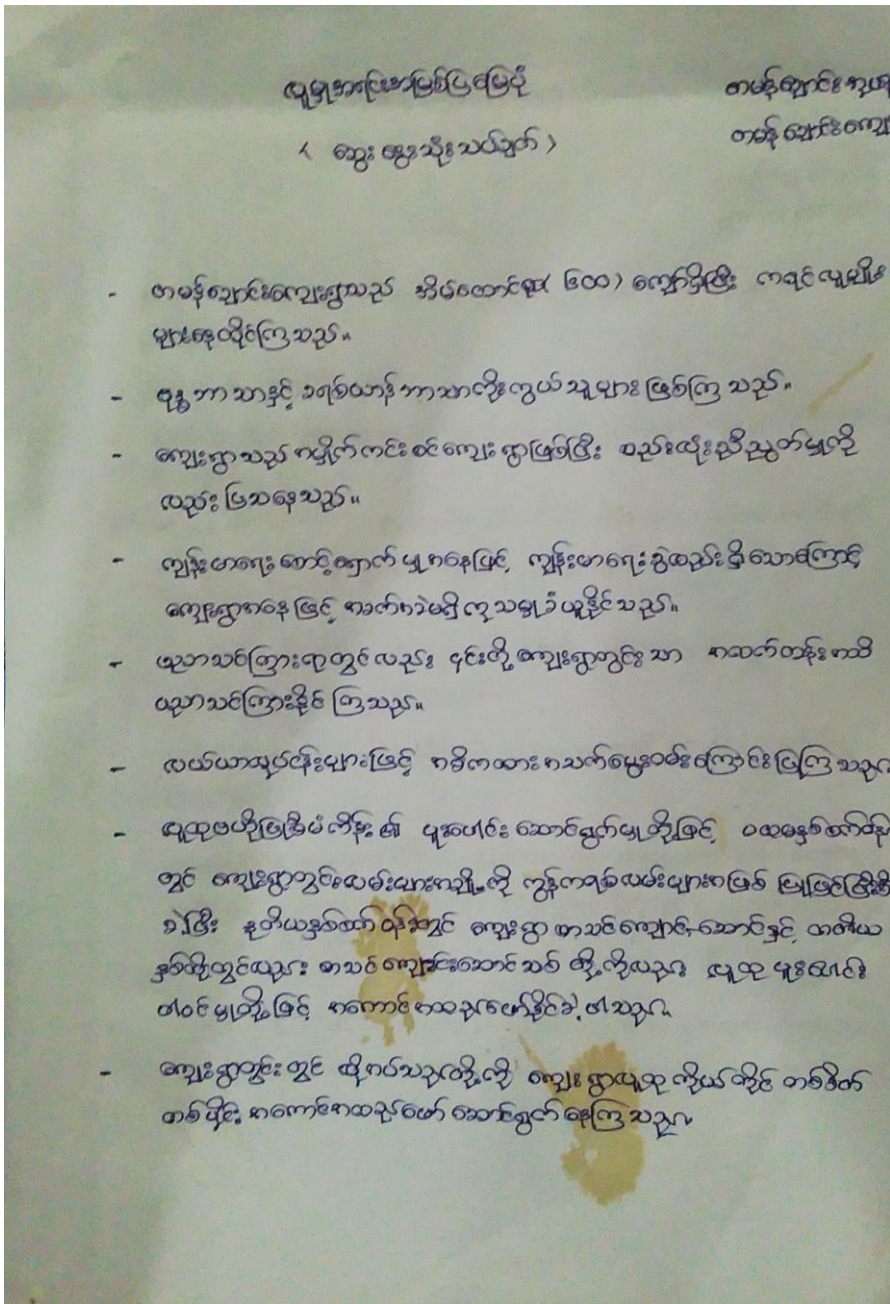 လူမှုအရင်းအမြစ်ပြမြေပုံ
တမန်ချောင်း
( ဆွေးနွေးသုံးသပ်ချက် )
တမန်ချောင်းကျေး
- တမန်ချောင်းကျေးရွာသည် အိမ်ထောင်စု ( ၆၀၀ ) ကျော်ရှိပြီး ကရင်လူမျိုး
များနေထိုင်ကြသည်။
- ဗုဒ္ဓဘာသာနှင့် ခရစ်ယာန်ဘာသာကိုးကွယ်သူများဖြစ်ကြသည်။
- ကျေးရွာသည် အမှိုက်ကင်းစင်ကျေးရွာဖြစ်ပြီး စည်းလုံးညီညွတ်မှုကို
လည်းပြသနေသည်။
- ကျန်းမာရေးစောင့်ရှောက်မှုအနေဖြင့် ကျန်းမာရေးခွဲလည်းရှိသောကြောင့်
ကျေးရွာအနေဖြင့် အခက်အခဲမရှိကုသမှုခံယူနိုင်သည်။
- ပညာသင်ကြားရာတွင်လည်း ၎င်းတို့ကျေးရွာတွင်းသာ အထက်တန်းအထိ
ပညာသင်ကြားနိုင်ကြသည်။
- လယ်ယာလုပ်ငန်းများဖြင့် အဓိကထားအသက်မွေးဝမ်းကြောင်းပြုကြသည်။
- လူထုဗဟိုပြုစီမံကိန်း၏ ပူးပေါင်းဆောင်ရွက်မှုတို့ဖြင့် ပထမနှစ်
တွင် ကျေးရွာတွင်းလမ်းများအချို့ကို ကွန်ကရစ်လမ်းများအဖြစ် ပြုပြင်ပြီးစီး
ခဲ့ပြီး ဒုတိယနှစ် တွင် ကျေးရွာစာသင်ကျောင်းဆောင်နှင့် တတိယ
နှစ်တို့တွင်လည်း စာသင်ကျောင်းဆောင်သစ်တို့ကိုလည်း လူထုပူးပေါင်း
ပါဝင်မှုတို့ဖြင့် အကောင်အထည်ဖော်နိုင်ခဲ့ပါသည်။
- ကျေးရွာတွင်းတွင် လိုအပ်သည်တို့ကို ကျေးရွာလူထုကိုယ်တိုင် တစ်စိတ်
တစ်ပိုင်း အကောင်အထည်ဖော်ဆောင်ရွက်နေကြသည်။